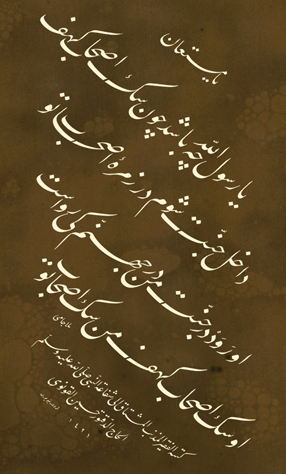 یا مستعان
یا رسول الله چه باشد چون سگ اصحاب کهف
داخل جنت شوم در زمرهٔ اصحاب تو
او رود در جنت من در جهنم کی رواست
او سگ اصحاب کهف من سگ اصحاب تو
ملا جامی
کتبه الفقیر المذنب المشتاق الی شفاعة النبی صلی الله علیه وسلم
الحاج الدقتور حسین القونوی